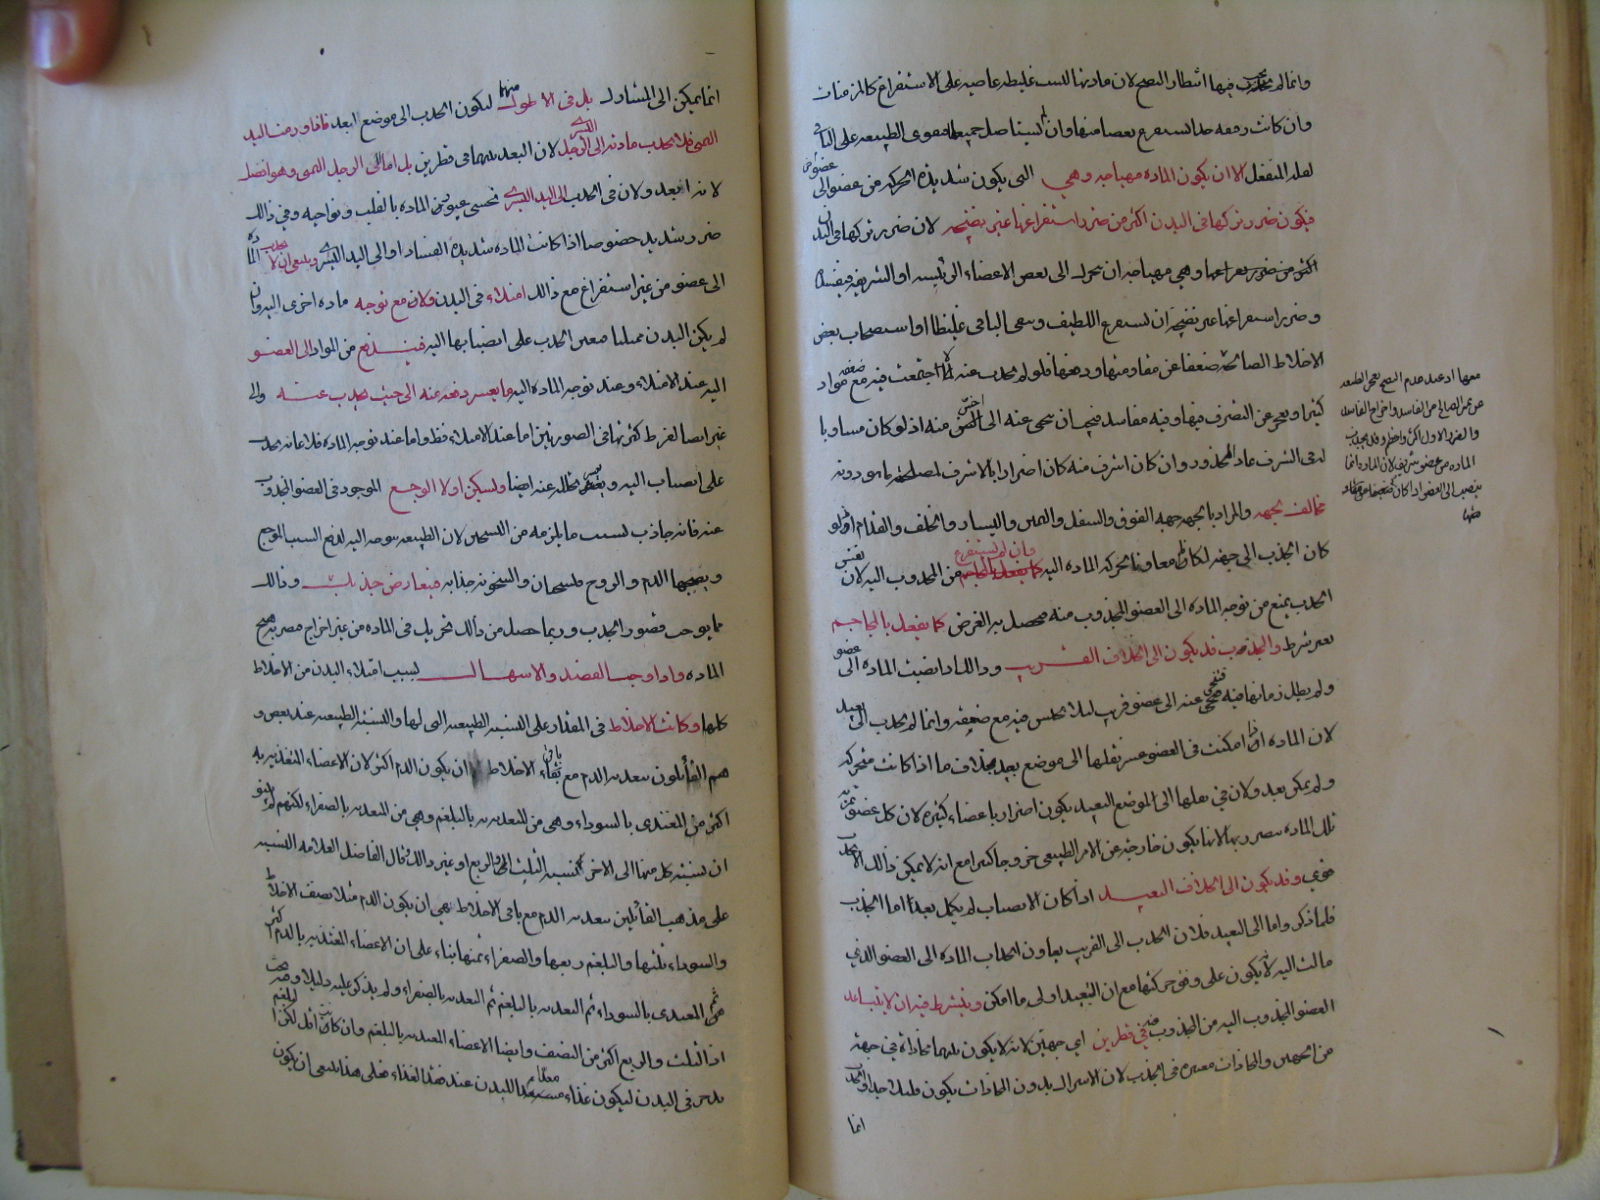 وانما لم يجب فيها انتظار النضج لان مادتها ليست غليظه عاصيه على الاستفراغ كالمزمنات
وان كانت رقيقه جدا يستفرغ بعضا منها وان لم يستاصل جميعها فيقوى الطبيعه على الباقى
لقله المنفعل الا ان يكون الماده مهياجه وهي التى يكون شديدة الحركه من عضو الى عضو
فيكون ضرر تركها فى البدن اكثر من ضرر استفراغها غير نضيجه لان ضرر تركها فى البدن
اكثر من ضرر وهي مهياجه ان يتحرك الى بعض الاعضاء الرئيسه او الشريفه فيفسده
وضرر استفراغها غير نضيجه ان يستفرغ اللطيف ويبقى الباقى غليظا او استصحاب بعض
الاخلاط الصالحة ضعفا عن مقاومتها ودفعها فلو لم يجذب عنه لاجتمعت فيه مع ضعفه مواد
كثيرا ويعجز عن التصرف فيها وفيه مفاسد فيجب ان ينحى عنه الى اخس منه اذ لو كان مساويا
له فى الشرف عاد المحذور وان كان اشرف منه كان اضرارا بالاشرف لمصلحة ما هو دونه
مخالف جهه والمراد بالجهه جهه الفوق والسفل واليمين واليسار والخلف والقدام اذ لو
كان الجذب الى جهه لكان معاونا لحركه الماده اليه وان لم يستفرغ من المجذوب اليه لان نفس
الجذب يمنع من توجه الماده الى العضو المجذوب منه فيحصل به الغرض كما يفعل بالمحاجم
بغير شرط والجذب قد يكون الى الخلاف القريب وذلك اذا انصبت الماده الى عضو
ولم يطل زمانها فيه فتنحى عنه الى عضو قريب لئلا يحتبس فيه مع ضعفه وانما لم يجذب الى بعيد
لان الماده اذا امكنت فى العضو عسر نقلها الى موضع بعيد بخلاف ما اذا كانت متحركه
ولم يمكن بعد ولان فى نقلها الى الموضع البعيد يكون اضرارا باعضاء كثيره لان كل عضو تمر به
تلك الماده يتضرر بها لانها يكون خارجه عن الامر الطبيعى خروجا كثيرا مع انه لا يمكن ذلك الا بجذب
قوى وقد يكون الى الخلاف البعيد اذا كان الانصباب لم يكمل بعد اما الجذب
فلما ذكر واما الى البعيد فلان الجذب الى القريب يعاون انجذاب الماده الى العضو الذى
مالت اليه لانه يكون على وفق حركتها مع ان التبعيد اولى ما امكن ويشترط فيه ان لا يتباعد
العضو المجذوب اليه من المجذوب عنه فى قطرين اى جهتين لانه لا يكون بينهما محاذاة فى جهة
من الجهتين والمحاذات معتبره فى الجذب لان الاشتراك بدون المحاذات يكون قليلا جدا والجذب
انما
معها اذ عند عدم النضج يعجز الطبيعه
عن تميز الصالح من الفاسد واخراج الفاسد
والضرر الاول اكثر واعظم وقد يجذب
الماده من عضو شريف لان الماده انما
ينصب الى العضو اذا كان ضعيفا عن مقاومتها
انما يمكن الى المشارك بل فى الاطول منهما ليكون الجذب الى موضع ابعد فاذا ورمت اليد
اليمنى فلا يجذب مادته الى الرجل اليسرى لان البعد بينهما فى قطرين بل اما الى الرجل اليمنى وهو افضل
لانه ابعد ولان فى الجذب الى اليد اليسرى يخشى عبور الماده بالقلب ونواحيه وفى ذلك
ضرر شديد خصوصا اذا كانت الماده شديدة الفساد او الى اليد اليسرى وينبغى ان لا يجذب الماده
الى عضو من غير استفراغ مع ذلك امتلاء فى البدن ولان مع توجه ماده اخرى اليه وان
لم يكن البدن ممتليا معين الجذب على انصبابها اليه فيندفع من المواد الى العضو
اليه عند الامتلاء وعند توجه الماده اليه ما يعسر دفعه عنه الى حيث يجذب عنه والى
غيره ايضا لفرط كثرتها فى الصورتين اما عند الامتلاء فظ واما عند توجه الماده فلاعانه الجذب
على انصباب اليه ويعسر تحلله عنه ايضا وليسكن اولا الوجع الموجود فى العضو المجذوب
عنه فانه جاذب لسبب ما يلزمه من التسخين لان الطبيعه يتوجه اليه لدفع السبب الموجع
ويصحبها الدم والروح فيسخنان والسخونه جذابه فيعارض جذبك وذلك
مما يوجب قصور الجذب وربما حصل من ذلك تحريك فى الماده من غير اخراج فيصير يهيج
الماده واذا وجب الفصد والاسهال بسبب امتلاء البدن من الاخلاط
كلها وكانت الاخلاط فى المقدار على النسبه الطبيعيه التى لها والنسبه الطبيعيه عند بعض و
هم القائلون بتغذيه الدم مع باقى الاخلاط ان يكون الدم اكثر لان الاعضاء المتغذيه به
اكثر من المغتذى بالسوداء وهى من المتغذيه بالبلغم وهى من المتغذيه بالصفراء لكنهم لم يبينو
ان نسبة كل منها الى الاخر كنسبة الثلث او الربع او غير ذلك وقال الفاضل العلامه النسبه
على مذهب القائلين بتغذيه الدم مع باقى الاخلاط هى ان يكون الدم مثلا نصف الاخلاط
والسوداء ثلثها والبلغم ربعها والصفراء ثمنها بناء على ان الاعضاء المغتذيه بالدم اكثر
من المغتذى بالسوداء ثم المغتذيه بالبلغم ثم المغتذيه بالصفراء ولم يذكر عليه دليلا وفيه بحث
اذ الثلث والربع اكثر من النصف وايضا الاعضاء المغتذيه بالبلغم وان كانت اقل لكن البلغم
يدخر فى البدن ليكون غذاء معدا للبدن عند فقد الغذاء فعلى هذا ينبغى ان يكون